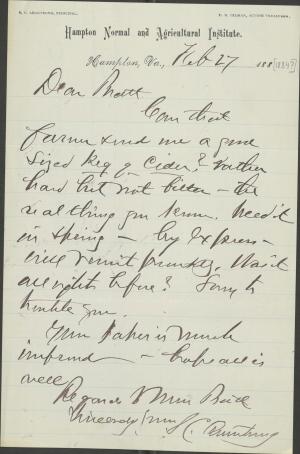 S. C. ARMSTRONG, PRINCIPAL.
Hampton Normal and Agricultural Institute.
Hampton, Va., Feb 27 188 [1884?]
Dear Pratt
Can that
farmer send me a good
sized keg of Cider? rather
hard but not bitter - the
real thing you know. Need it
in Spring - by express -
will remit promptly. Was it
all right before? Sorry to
trouble you.
Your paper is much
improved - hope all is
well
Regards to Mrs
Sincerely yours S. C. Armstrong